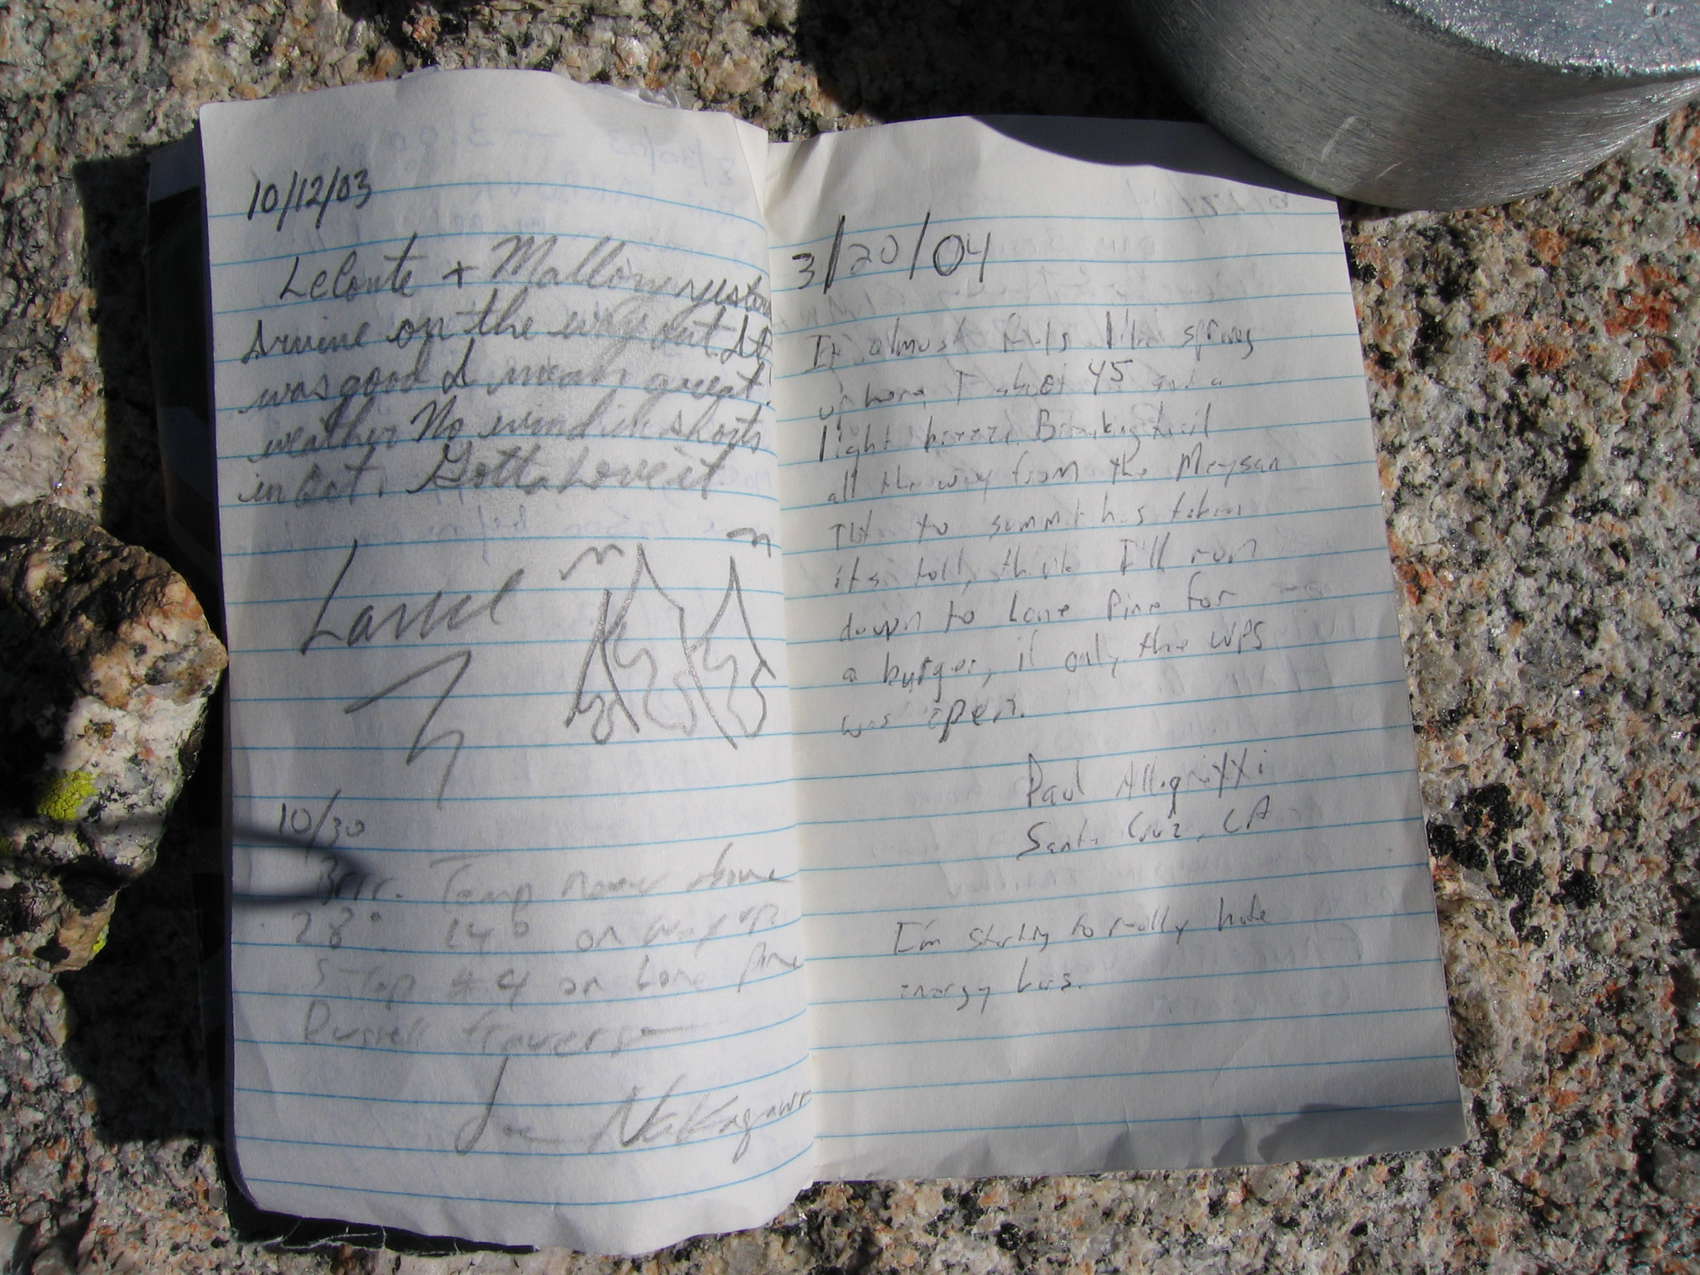 10/12/03
LeConte + Mallory
Irvine on the way out It
was good I mean great
weather No wind in shorts
in Oct. Gotta Love it
10/30
Brrr. Temp never above
28° 14° on way up
Stop #4 on Lone Pine
Russell Traverse
Nakagawa
3/20/04
It almost feels like spring
up here, about 45 and a
light breeze. Breaking trail
all the way from the Meysan
TH to summit has taken
its toll, think I'll run
down to Lone Pine for
a burger, if only the WPS
was open.
Paul Allegrixxi
Santa Cruz, CA
I'm starting to really hate
energy bars.